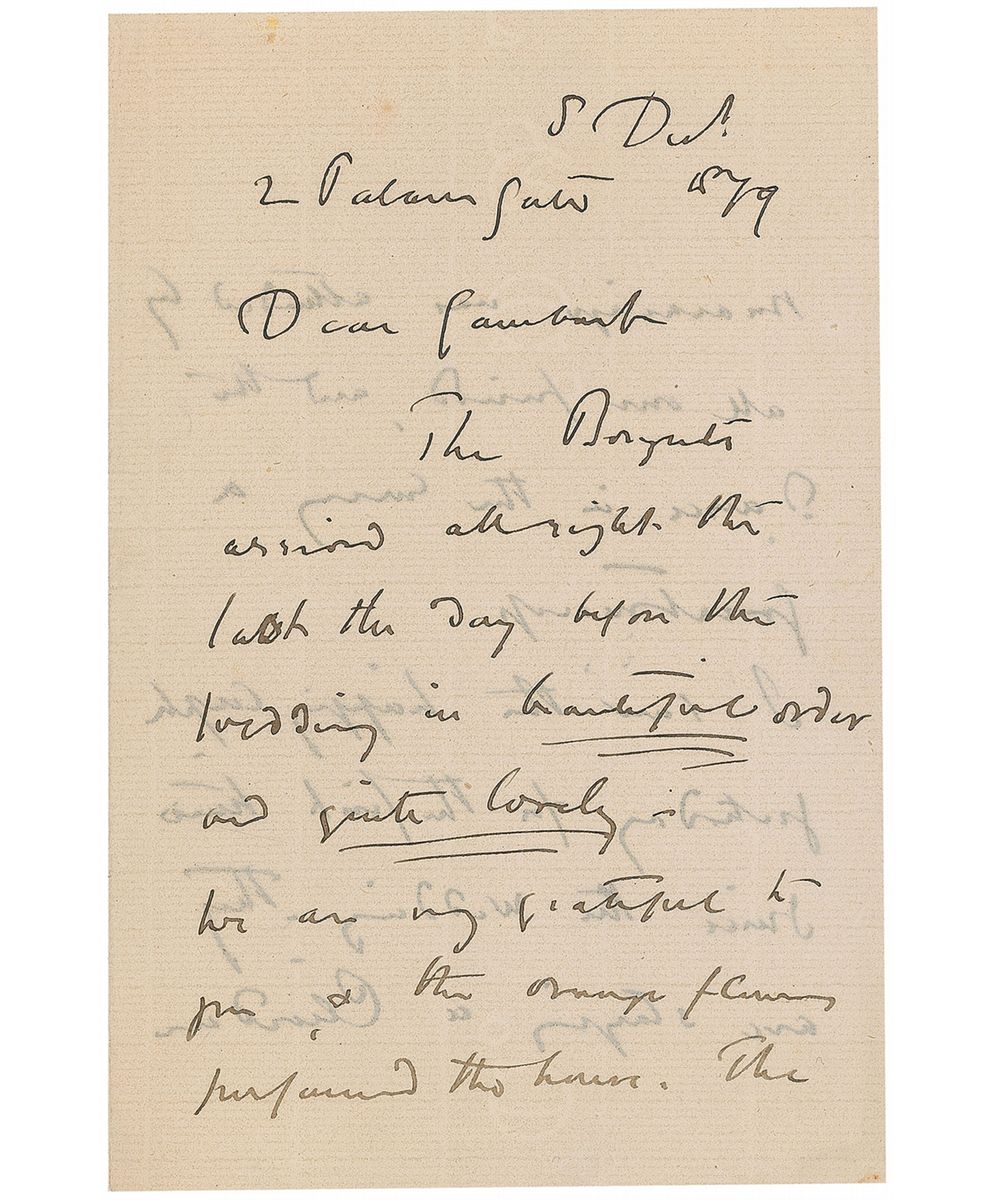 8 Dec.
2 Palace Gate 1879
Dear Gambart
The Boquets
arrived all right the
last the day before the
wedding in beautiful order
and quite lovely -
We are very grateful to
you, & the orange flowers
perfumed the house. The